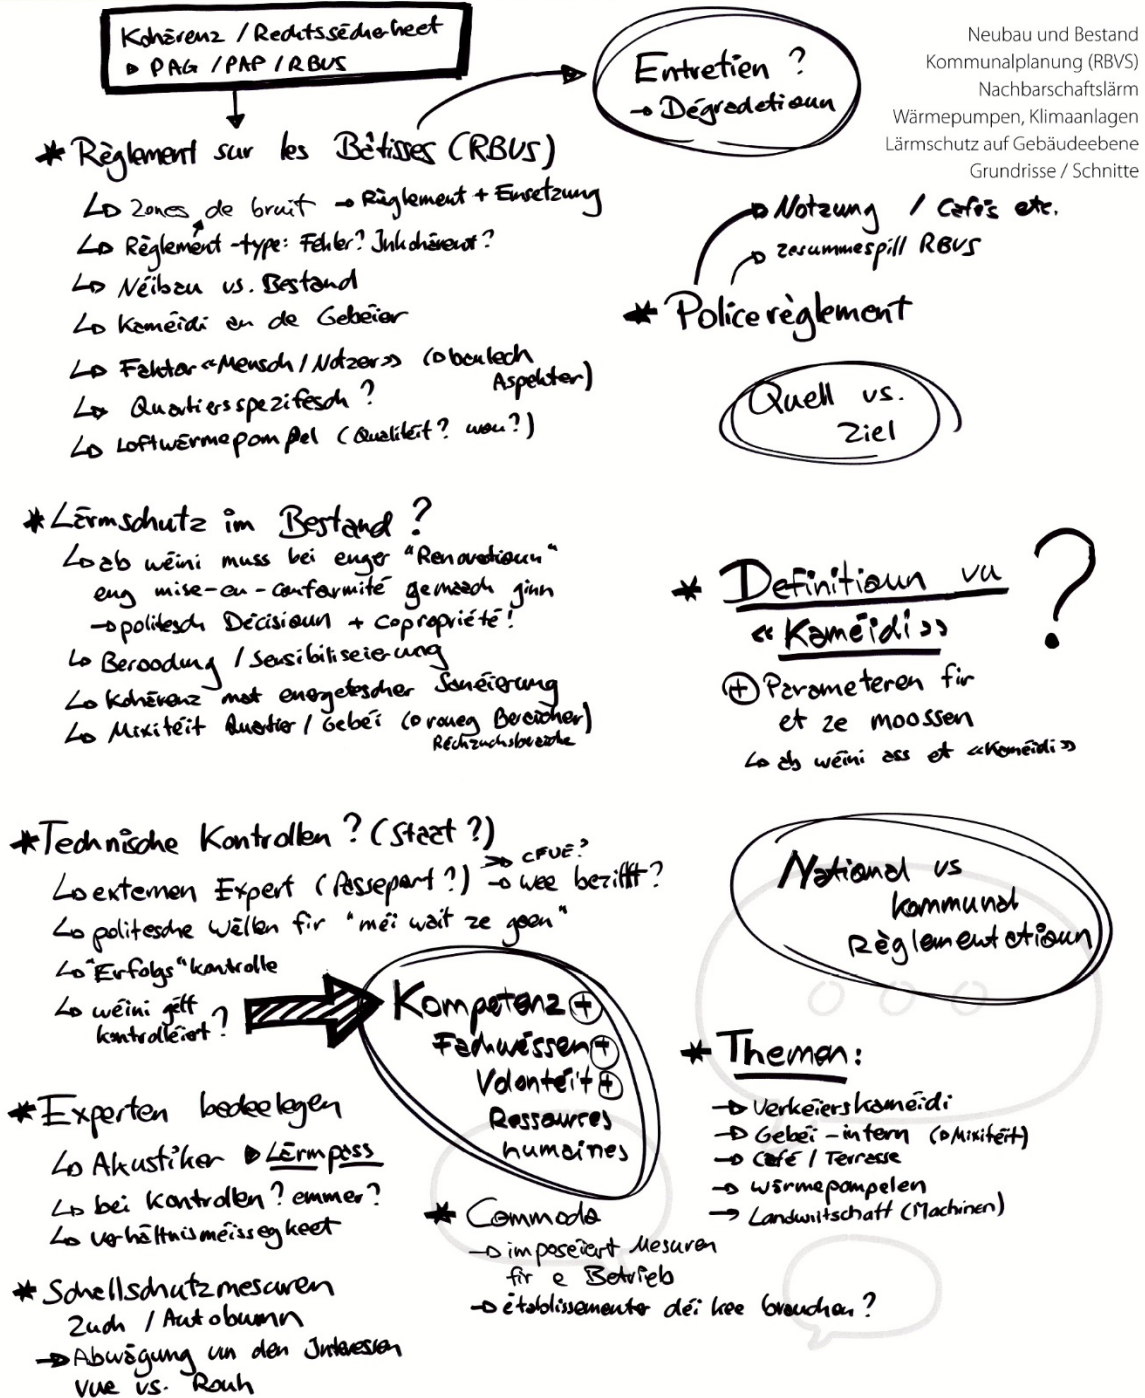 Kohärenz / Rechtssécherheet
▷ PAG / PAP / RBVS
Entretien ?
→ Dégradatioun
Neubau und Bestand
Kommunalplanung (RBVS)
Nachbarschaftslärm
Wärmepumpen, Klimaanlagen
Lärmschutz auf Gebäudeebene
Grundrisse / Schnitte
* Règlement sur les Bâtisses (RBVS)
↳ Zones de bruit → Règlement + Ëmsetzung
↳ Règlement-type: Fehler? Inkohärent?
↳ Neibau vs. Bestand
↳ Kaméidi an de Gebeier
↳ Faktor «Mensch / Notzer» (▷ baulech
Aspekter)
↳ Quartiersspezifesch ?
↳ Loftwärmepompel (Qualitéit? wou?)
→ Notzung / Cafés etc.
→ zesummespill RBVS
* Policerèglement
Quell vs.
Ziel
* Lärmschutz im Bestand ?
↳ ab wéini muss bei enger "Renovatioun"
eng mise-en-conformité gemaach ginn
→ politesch Décisioun + copropriété!
↳ Berodung / Sensibiliséierung
↳ Kohärenz mat energetescher Sanéierung
↳ Mixitéit Quartier / Gebei (▷ roueg Beräicher)
Réckzuchsberäiche
* Definitioun vu
«Kaméidi» ?
⊕ Parameteren fir
et ze moossen
↳ ab wéini ass et «Kaméidi»
* Technische Kontrollen ? (Staat ?)
↳ externen Expert (Passepart ?) → wee bezifft?
→ CFUE?
↳ politesche Wëllen fir "méi wait ze goen"
↳ "Erfolgs"kontrolle
↳ wéini gëtt
kontrolléiert ?
National vs
kommunal
Règlementatioun
Kompetenz ⊕
Fachwëssen ⊕
Volontéit ⊕
Ressources
humaines
* Themen:
→ Verkéierskaméidi
→ Gebei-intern (▷ Mixitéit)
→ Café / Terrasse
→ Wärmepompelen
→ Landwirtschaft (Machinen)
* Experten bedeelegen
↳ Akustiker ▷ Lärmpass
↳ bei Kontrollen ? ëmmer ?
↳ Verhältnisméissegkeet
* Commodo
→ imposéiert Mesuren
fir e Betrieb
→ établissementer déi kee brauchen ?
* Schallschutzmesuren
Zuch / Autobunn
→ Abwägung vun den Interessen
Vue vs. Rouh